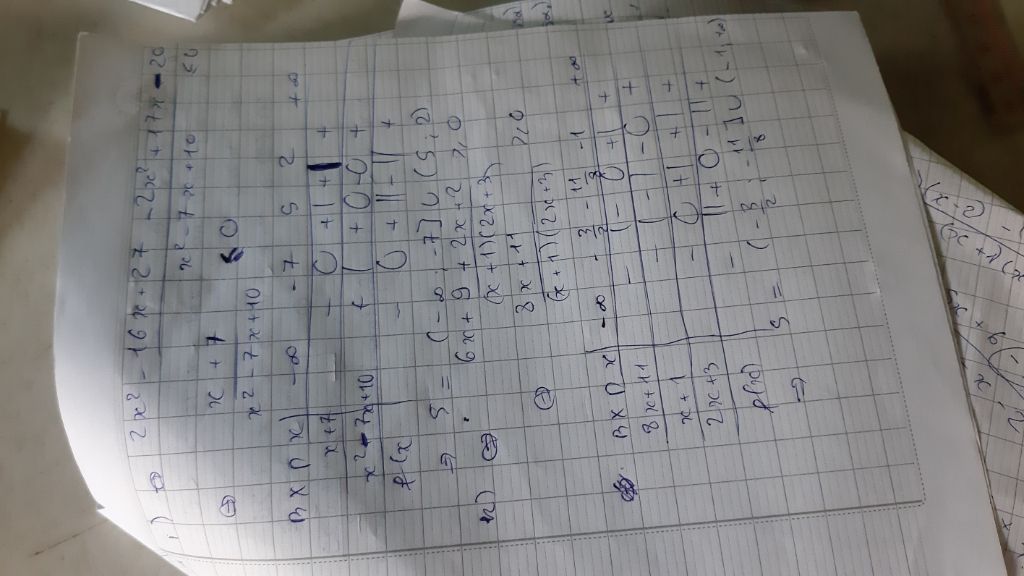 i) ⇔ 2x² - 16x + 27 - 2x² + 17x - 20
x² - 7x + 10 ≤ 0
⇔ x + 7
x² - 7x + 10 ≤ 0
BXD x | -∞ -7 5 2 +∞
x+7 | - 0 + | + | +
x² - 7x + 10 | + | + 0 - 0 +
f(x | - 0 + || - || +
⇒ S = (-∞ ; -7] ∪ (5 ; 2)
k) ⇔ 6x + 9 + 2x + 2 ≥ 0
(x+1)(2x+3)
⇔ 8x + 11 ≥ 0
(x+1)(2x+3)
BXD x | -∞ -3/2 -11/8 -1 +∞
8x+11 | - | - 0 + | +
x+1 | - | - | - 0 +
2x+3 | - 0 + | + | +
f(x) | - || + 0 - || +
⇒ S = (-3/2 ; -11/8] ∪ (-1, +∞)